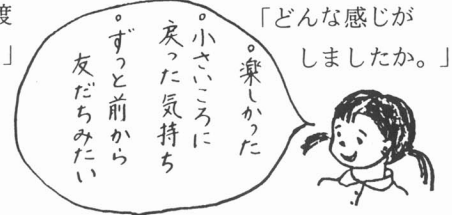 「どんな感じが
しましたか。」
。楽しかった
。小さいころに
戻った気持ち
。ずっと前から
友だちみたい
渡
」